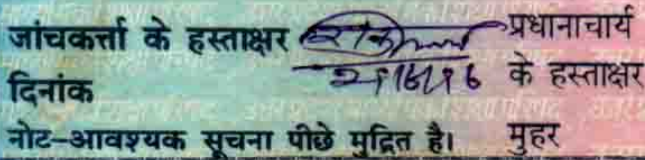 जांचकर्त्ता के हस्ताक्षर प्रधानाचार्य
दिनांक के हस्ताक्षर
नोट-आवश्यक सूचना पीछे मुद्रित है। मुहर